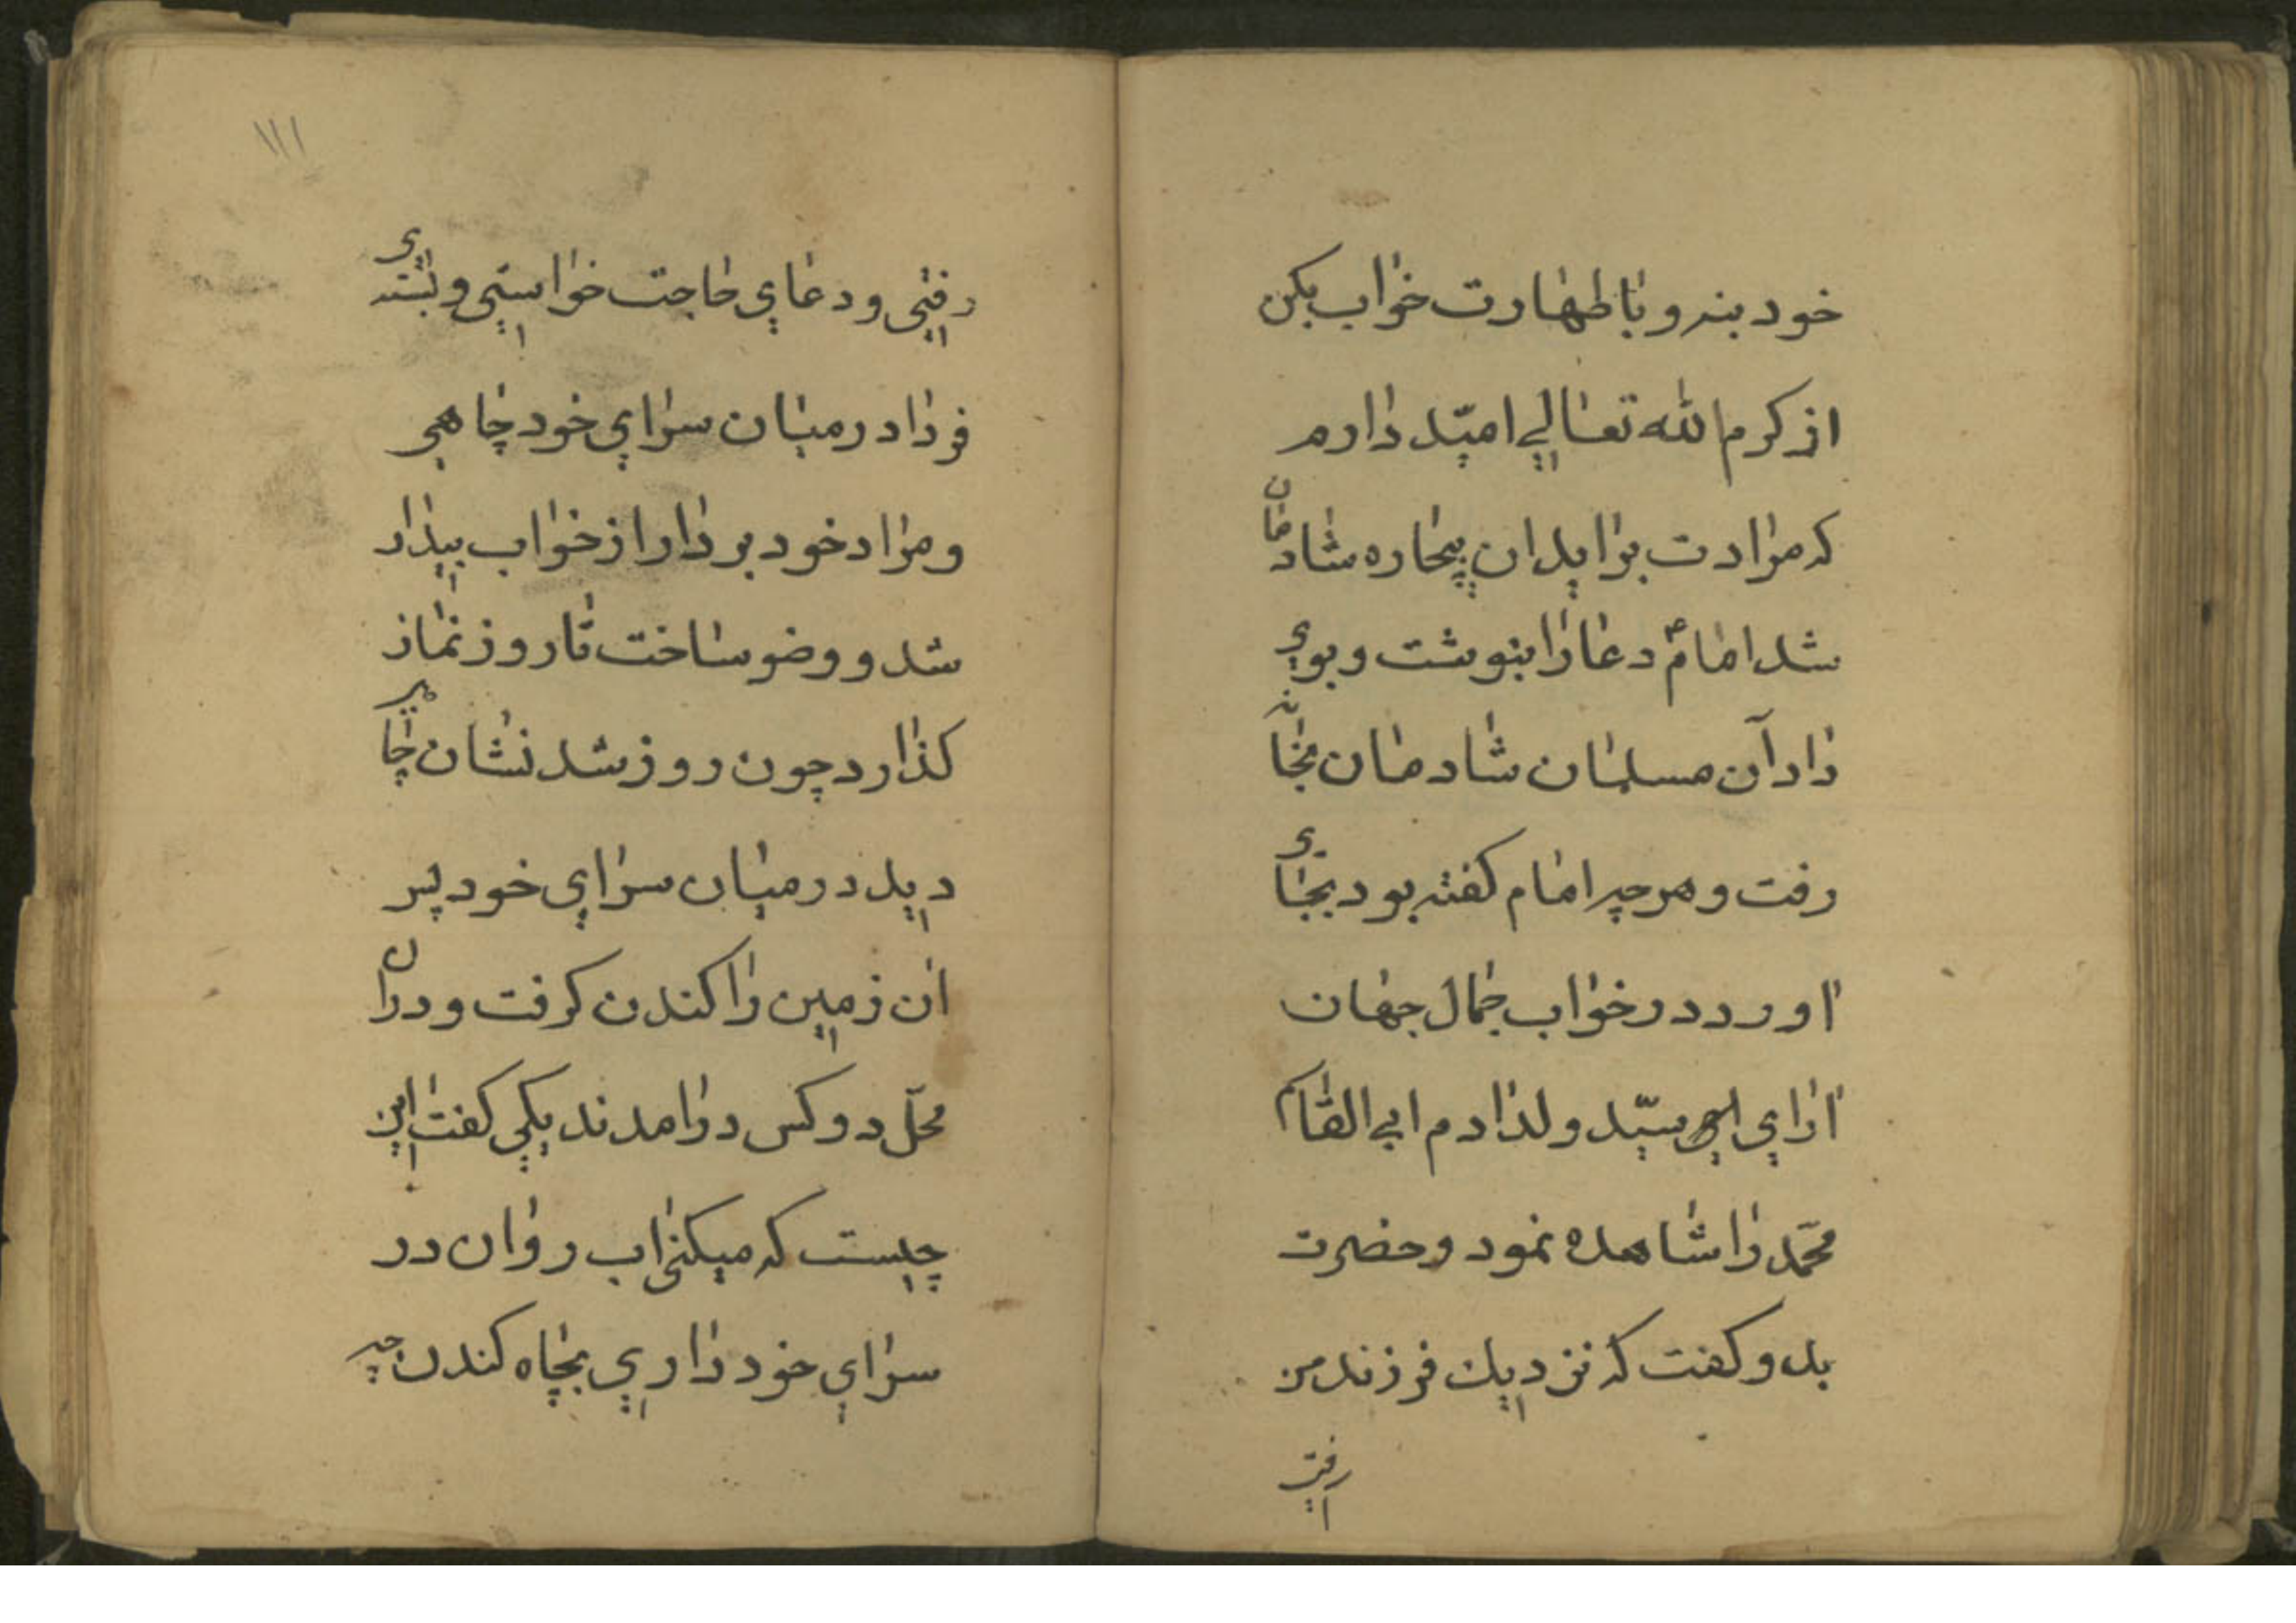 خود بنه و باطهارت خواب بکن
از کرم الله تعالی امید دارم
که مرادت براید ان بیچاره شادمان
شد امام دعا را بنوشت و بوی
داد آن مسلمان شادمان بخانه
رفت و هر چه امام کفته بود بجای
اورد در خواب جمال جهان
ارای سید ولد ادم ابی القاسم
محمد را شاهده نمود و حضرت
بدو کفت که نزدیك فرزند من
رفتی
۱۱۱
رفتی و دعای حاجت خواستی و بستدی
فردا در میان سرای خود چاهی
و مراد خود بردار از خواب بیدار
شد و وضو ساخت تا روز نماز
کذارد چون روز شد نشان چاهی
دید در میان سرای خود پس
ان زمین را کندن کرفت و دران
محل دو کس درامدند یکی کفت این
چیست که میکنی اب روان در
سرای خود داری بچاه کندن چه